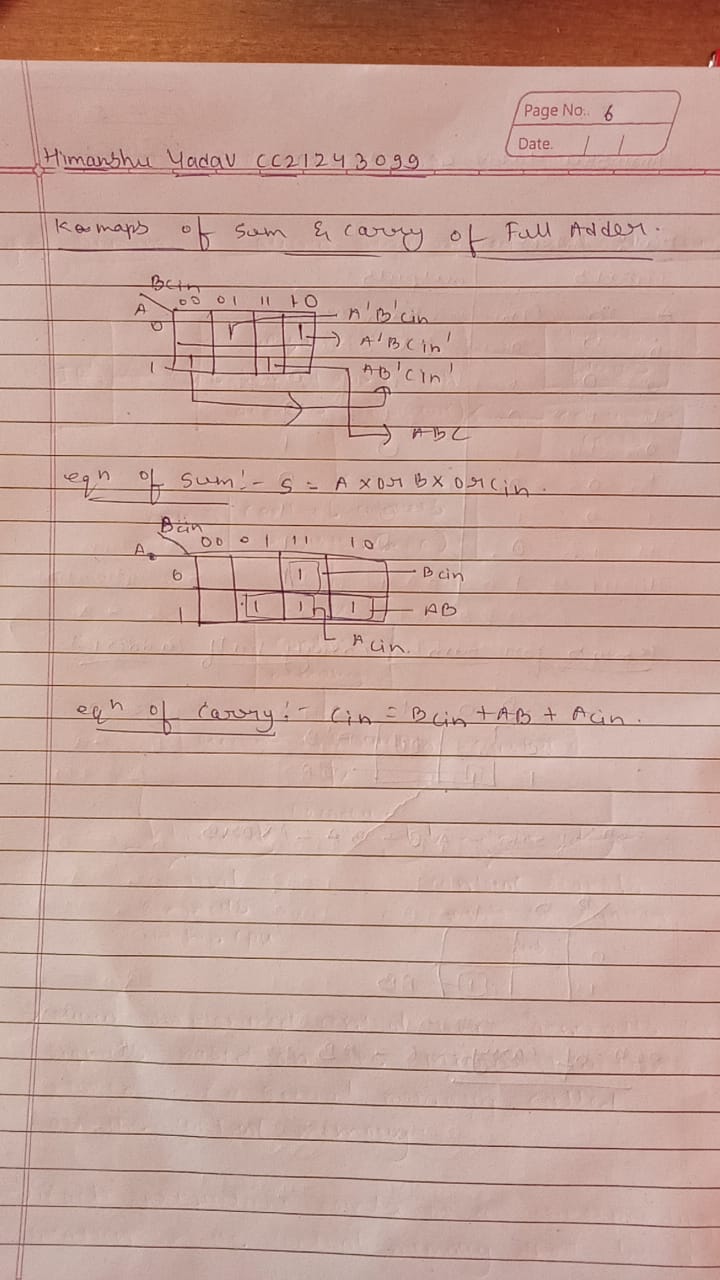 Page No.. 6
Date. / /
Himanshu Yadav CC21243099
K maps of Sum & Carry of Full Adder.
BCin
A 00 01 11 10
0 1 1 A'B'Cin
A'BCin'
1 1 1 AB'Cin'
ABC
eqn of Sum:- S = A xor B xor Cin.
BCin
A 00 01 11 10
0 1 BCin
1 1 1 1 AB
ACin.
eqn of Carry:- Cin = BCin + AB + ACin.